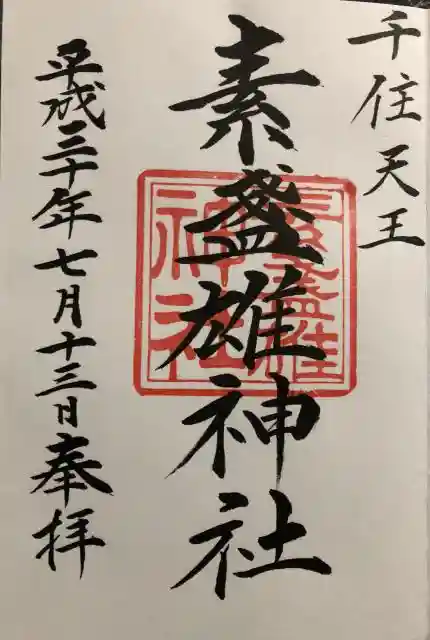 千住天王
素盞雄神社
素盞雄神社
平成三十年七月十三日奉拝